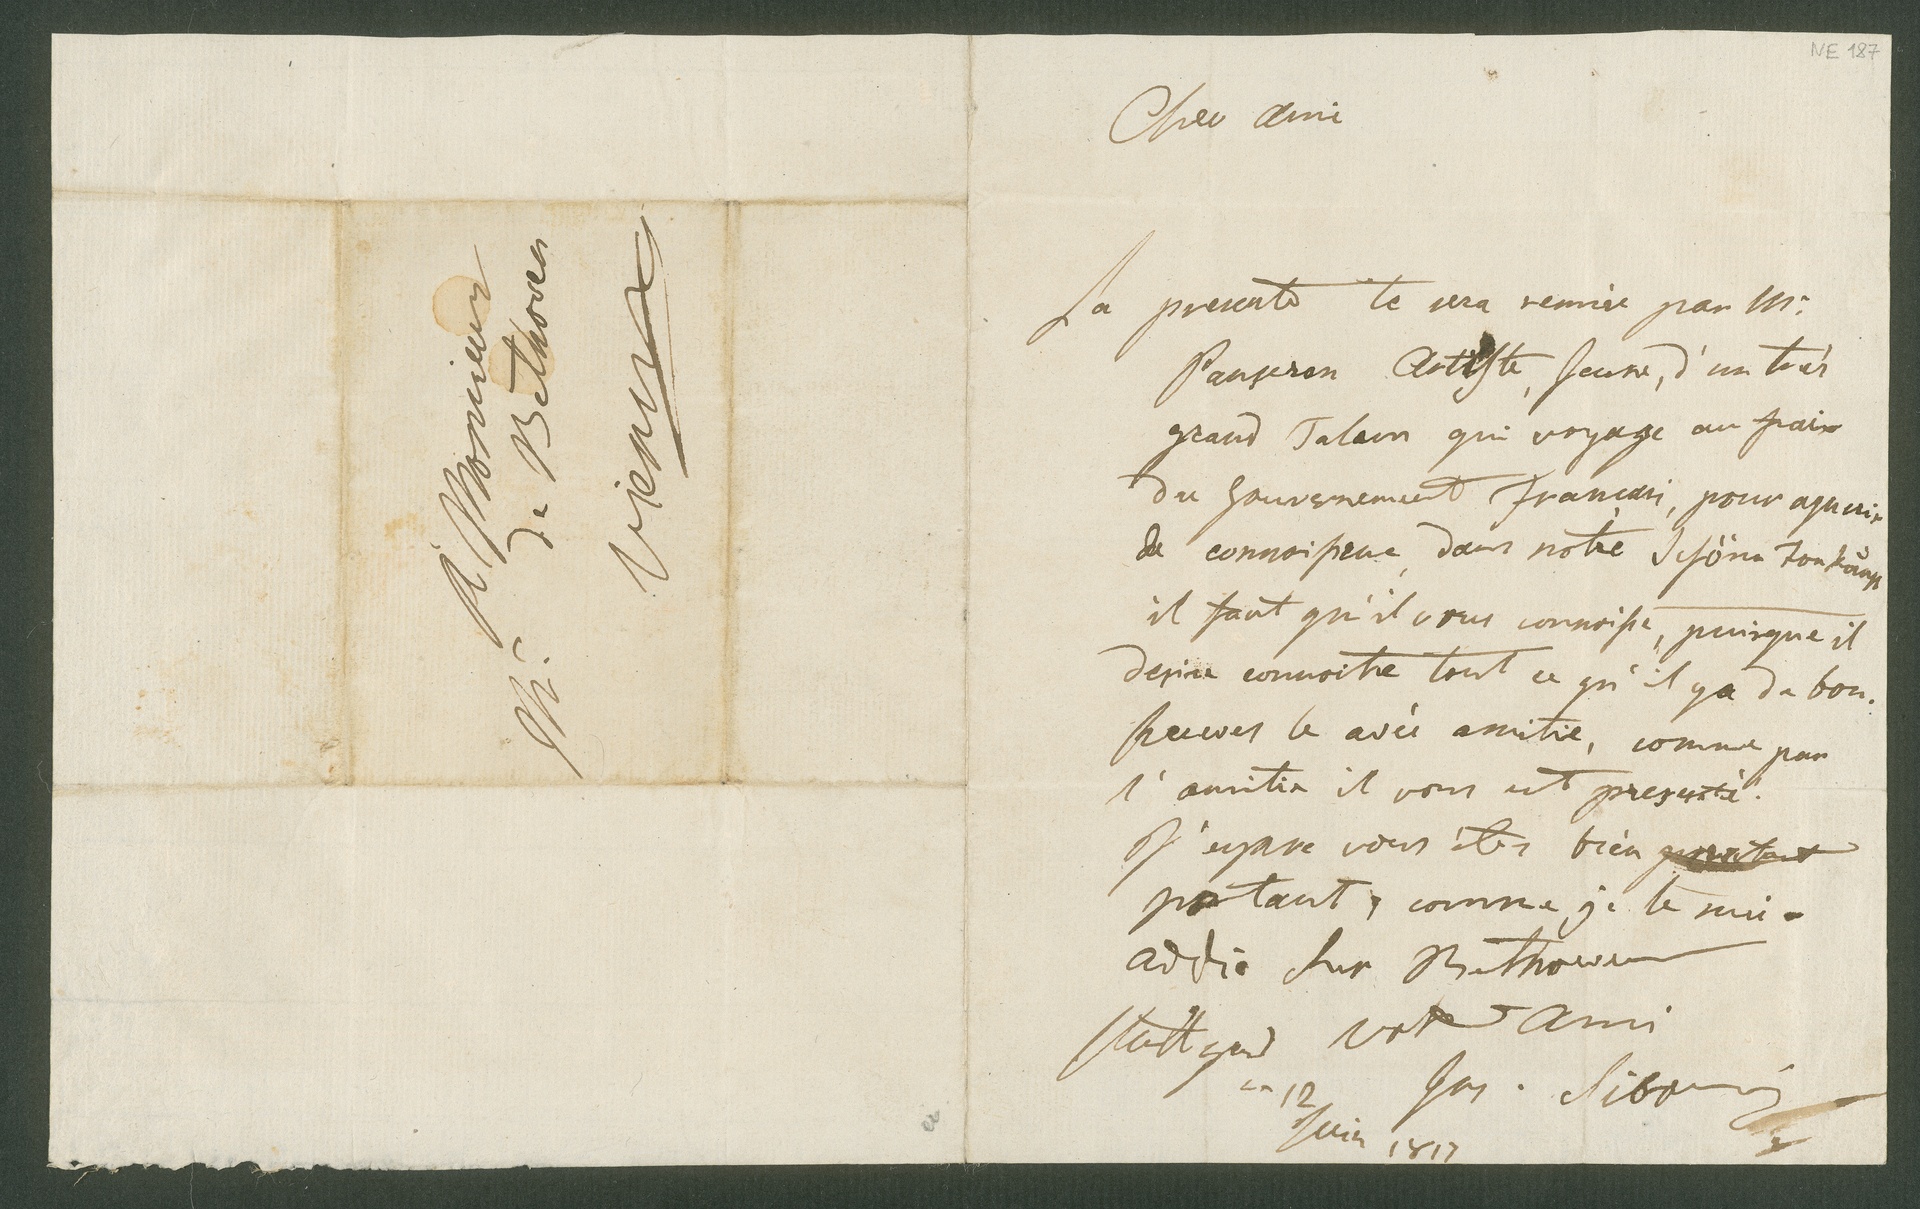 NE 187
A Monsieur
de Bethoven
Mr.
Vienne
Cher Ami
La presente te sera remise par Mr.
Panseron Artiste, Jeune, d'un trés
grand Talent qui voyage au frais
du Gouvernement français, pour aquerir
de connoissence, dans notre Schöne Tonkunst
il faut qu'il vous connoisse, puisque il
desire connoitre tout ce qu'il y a de bon.
Recevez le avéc amitié, comme par
l'amitié il vous est presenté.
J'espere vous étes bién
portant, comme je le suis.
addio cher Bethowen
Stuttgard votre Ami
ce 12 Jos. Siboni
Juin 1817